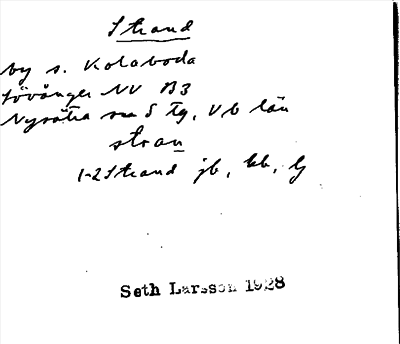 Strand
by s. Kolaboda
Lövånger NV B3
Nysätra sn S tg, Vb län
stran
1-2 Strand jb, kb, lj
Seth Larsson 1928